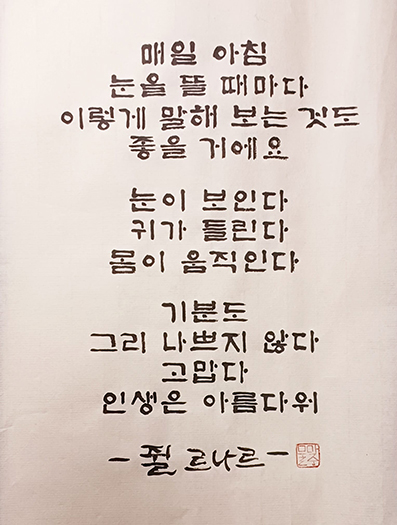 매일 아침
눈을 뜰 때마다
이렇게 말해 보는 것도
좋을 거에요
눈이 보인다
귀가 들린다
몸이 움직인다
기분도
그리 나쁘지 않다
고맙다
인생은 아름다워
- 쥘 르나르 -